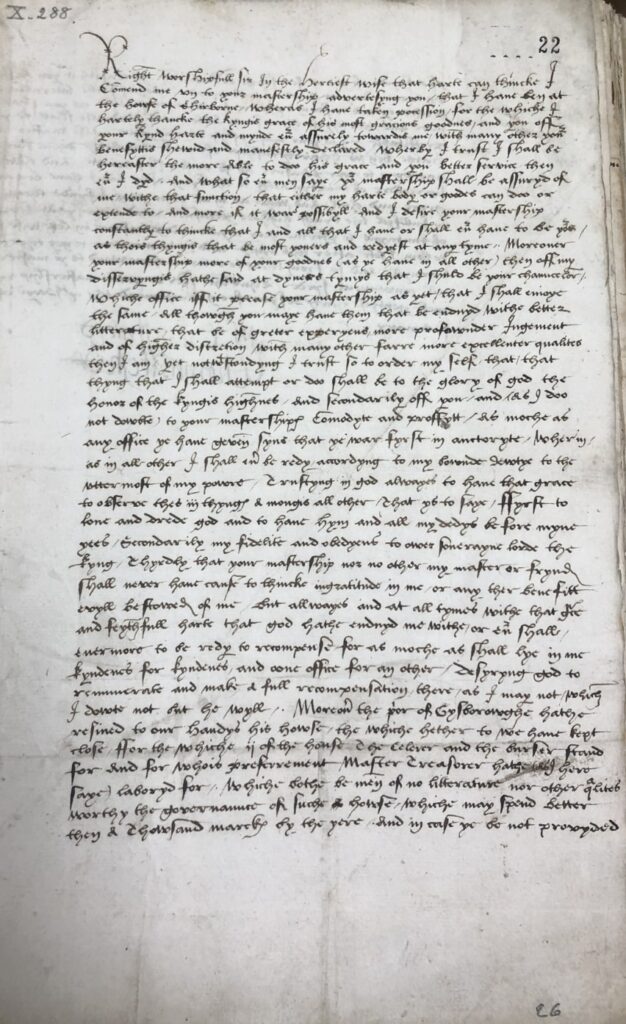 X. 288.
22
Right worshipfull sir In the hertiest wise that harte can thincke I
Comend me vn to your mastership advertesyng you, that I have ben at
the howse of Shirborne, wheras I have taken possession, for the whiche I
hartely thancke the kyngis grace of his most gracious goodnes, and you off
your kynd harte and mynde eu assurely towardis me with many other your
benefyttis shewid and manefestly declared wherby I trust I shall be
hereafter the more able to doo his grace and you better service then
eu I dyd. And what so eu men saye yor mastership shall be assuryd of
me withe that function, that either my harte body or godes can doo or
extende to and more if it war possibyll And I desire your mastership
constantly to thincke that I and all that I have or shall eu have to be yors
as thois thyngis that be most yoners and redyest at any tyme. Moreover
your mastership more of your goodnes (as ye have in all other) then off my
disservyngis, hathe said at dyverse tymis that I shuld be your chauncelor,
whiche office iff it please your mastership as yet, that I shall enioye
the same All thowgh you maye have them that be endnyd withe better
litterature, that be of greter experyens, more profownder Iugement
and of higher discretion with many other farre more excellenter qualites
then I am, yet notwtstondyng I trust so to order my self, that, that
thyng that I shall attempt or doo shall be to the glory of god the
honor of the kyngis highnes, And secondarily off you, and (as I doo
not dowbte) to your mastershipis Comodyte and proffytt, As moche as
any office ye have geven syns that ye war fyrst in auctoryte, wherin,
as in all other I shall eu be redy accordyng to my bownde dewtye to the
vttermost of my powre, Trustyng in god allwayes to have that grace
to observe thes iij thyngis a mongis all other, That ys to saye, Ffyrst to
love and drede god and to have hym and all my dedys before myne
yees, Secondarily my fidelite and obedyens to ower soverayne lorde the
kyng, Thyrdly that your mastership nor no other my master or frynd
shall never have cause to thincke ingratitude in me, or any ther benefitt
evyll bestowed of me, But allwayes and at all tymes withe that
and feythfull harte that god hathe endnyd me withe, or eu shall,
evermore to be redy to recompense for as moche as shall lye in me
kyndenes for kyndenes, and oone office for an other, Desyryng god to
remunerate and make a full recompensation there, as I may not, which
I dowte not but he wyll. Moreour the por of Gysborowghe hathe
resined to our handys his howse, the whiche hether to we have kept
close, Ffor the whiche ij of the house The Celerer and the burser stand
for And for whois preferrement Master Treasorer hathe (as I here
saye) laboryd for, Whiche bothe be men of no litterature nor other qlites
worthy the governaunce of suche a howse, whiche may spend better
then A Thowsand marckis by the yere, And in case ye be not provyded
26